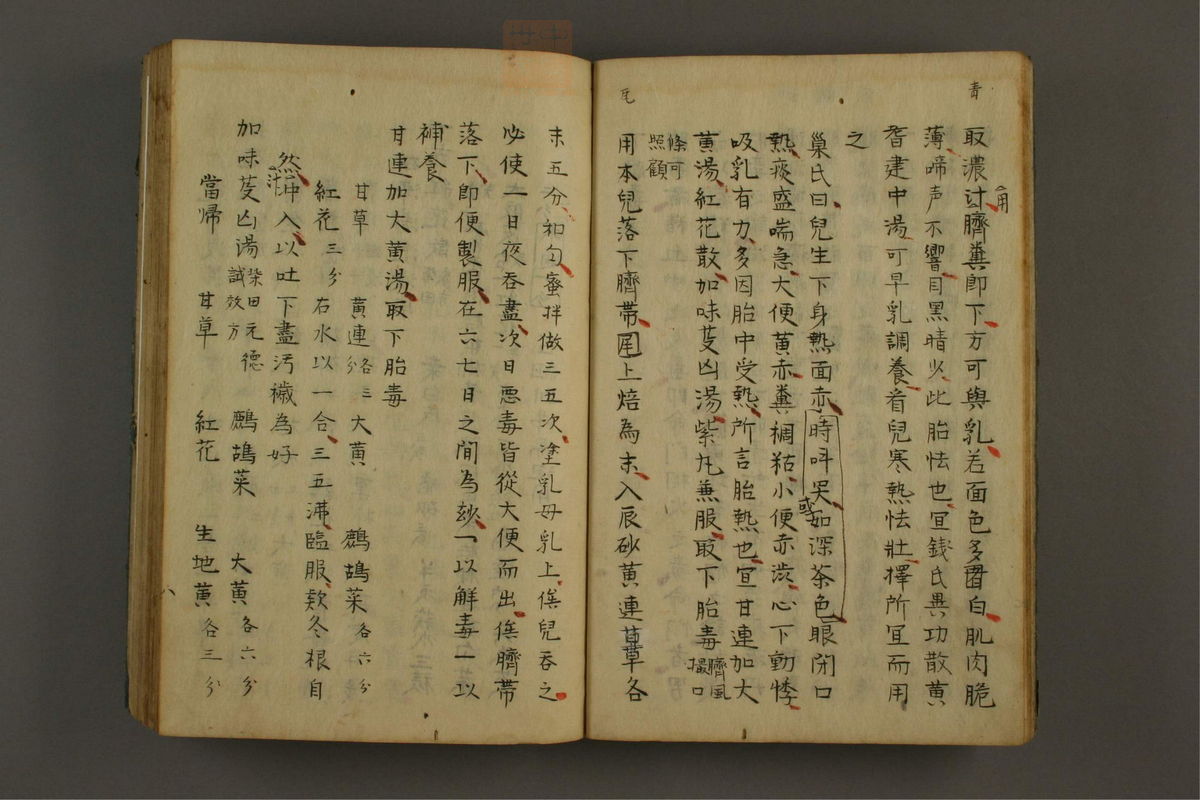 青
取濃汁臍糞即下方可與乳若面色多青白肌肉脆
薄啼声不響目黒晴少此胎怯也宜銭氏異功散黄
耆建中湯可早乳調養看兒寒熱怯壯擇所宜而用
之
巣氏曰兒生下身熱面赤時呌哭或如深茶色眼閉口
熱痰盛喘急大便黄赤糞稠粘小便赤渋心下動悸
吸乳有力多因胎中受熱所言胎熱也宜甘連加大
黄湯紅花散加味芟凶湯紫丸兼服取下胎毒臍風撮口
條可照顧
用本兒落下臍帯上焙為末入辰砂黄連草各
瓦
末五分和匀蜜拌做三五次塗乳母乳上俟兒呑之
必使一日夜呑盡次日悪毒皆從大便而出俟臍帯
落下即便製服在六七日之間為玅一以解毒一以
補養
甘連加大黄湯取下胎毒
甘草 黄連各三分 大黄 鷓鴣菜各六分
紅花三分 右水以一合三五沸臨服款冬根自
然汁冲入以吐下盡汚穢為好
加味芟凶湯柴田元徳試效方 鷓鴣菜 大黄各六分
當帰 甘草 紅花 生地黄各三分